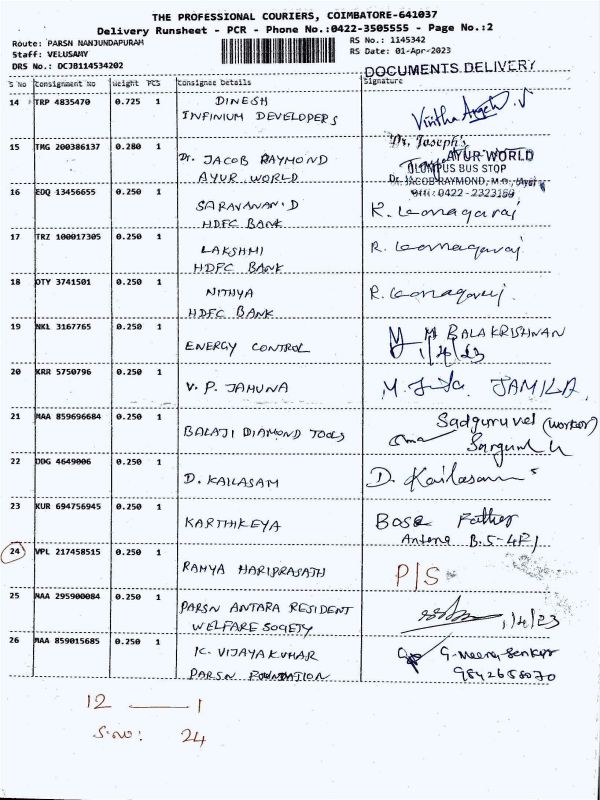 THE PROFESSIONAL COURIERS, COIMBATORE-641037
Delivery Runsheet - PCR - Phone No.:0422-3505555 - Page No.:2
Route: PARSN NANJUNDAPURAM
RS No.: 1145342
Staff: VELUSAMY
RS Date: 01-Apr-2023
DRS No.: DCJB114534202
DOCUMENTS DELIVERY
S No Consignment No Weight PCS Consignee Details Signature
14 TRP 4835470 0.725 1 DINESH
INFINIUM DEVELOPERS
15 TMG 200386137 0.280 1 Dr. Joseph's
Dr. JACOB RAYMOND AYUR WORLD
AYUR WORLD OLUMPUS BUS STOP
Dr. JACOB RAYMOND,
0422 - 2323159
16 EDQ 13456655 0.250 1 SARAVANAN.D
HDFC BANK
17 TRZ 100017305 0.250 1 LAKSHMI
HDFC BANK
18 OTY 3741501 0.250 1 NITHYA
HDFC BANK
19 NKL 3167765 0.250 1 M BALAKRISHNAN
ENERGY CONTROL 1/4/23
20 KRR 5750796 0.250 1
V. P. JAMUNA JAMILA
21 MAA 859696684 0.250 1 Sadguruvel (worker)
BALAJI DIAMOND TOOLS
22 DDG 4649006 0.250 1
D. KAILASAM D. Kailasam
23 KUR 694756945 0.250 1
KARTHIKEYA Bose Father
24 VPL 217458515 0.250 1
RAMYA HARIPRASATH P/S
25 MAA 295900084 0.250 1 PARSN ANTARA RESIDENT
WELFARE SOCIETY 1/4/23
26 MAA 859015685 0.250 1 K. VIJAYAKUMAR
PARSN FOUNDATION 9842658070
12 — 1
S.no: 24